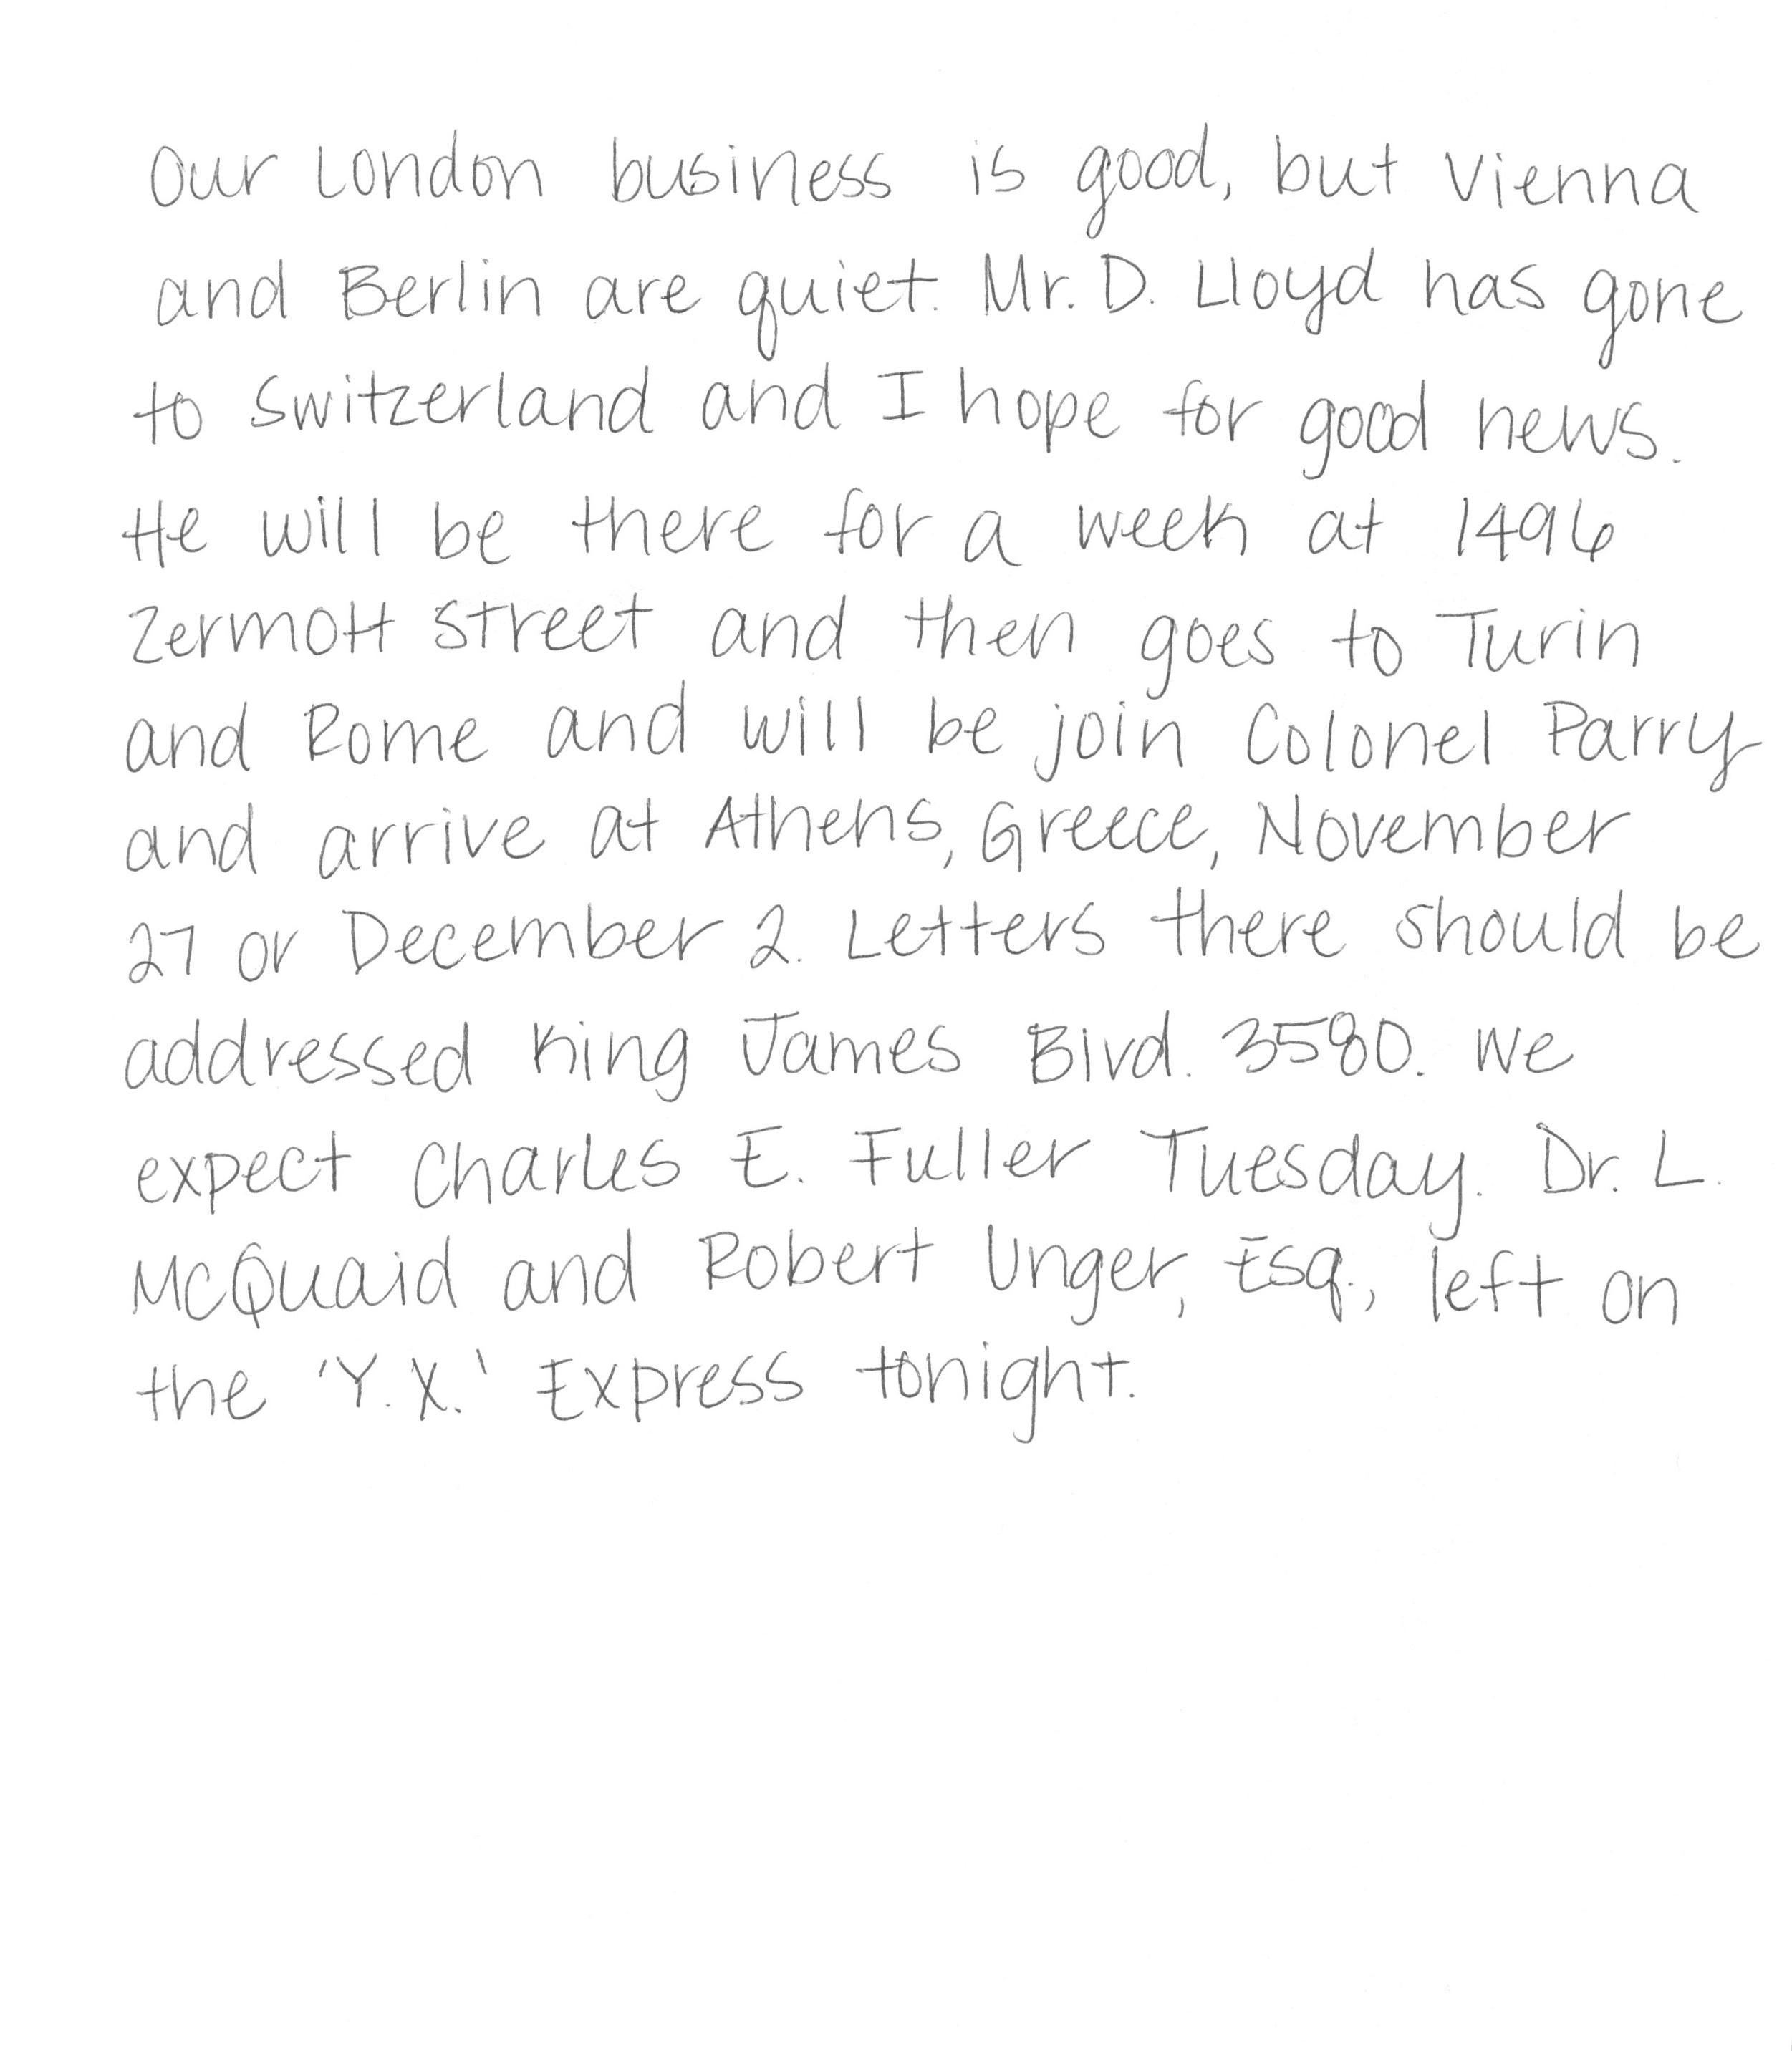 Our London business is good, but Vienna
and Berlin are quiet. Mr. D. Lloyd has gone
to Switzerland and I hope for good news.
He will be there for a week at 1496
Zermott Street and then goes to Turin
and Rome and will be join Colonel Parry
and arrive at Athens, Greece, November
27 or December 2. Letters there should be
addressed King James Blvd. 3580. We
expect Charles E. Fuller Tuesday. Dr. L.
McQuaid and Robert Unger, Esq., left on
the 'Y.X.' Express tonight.